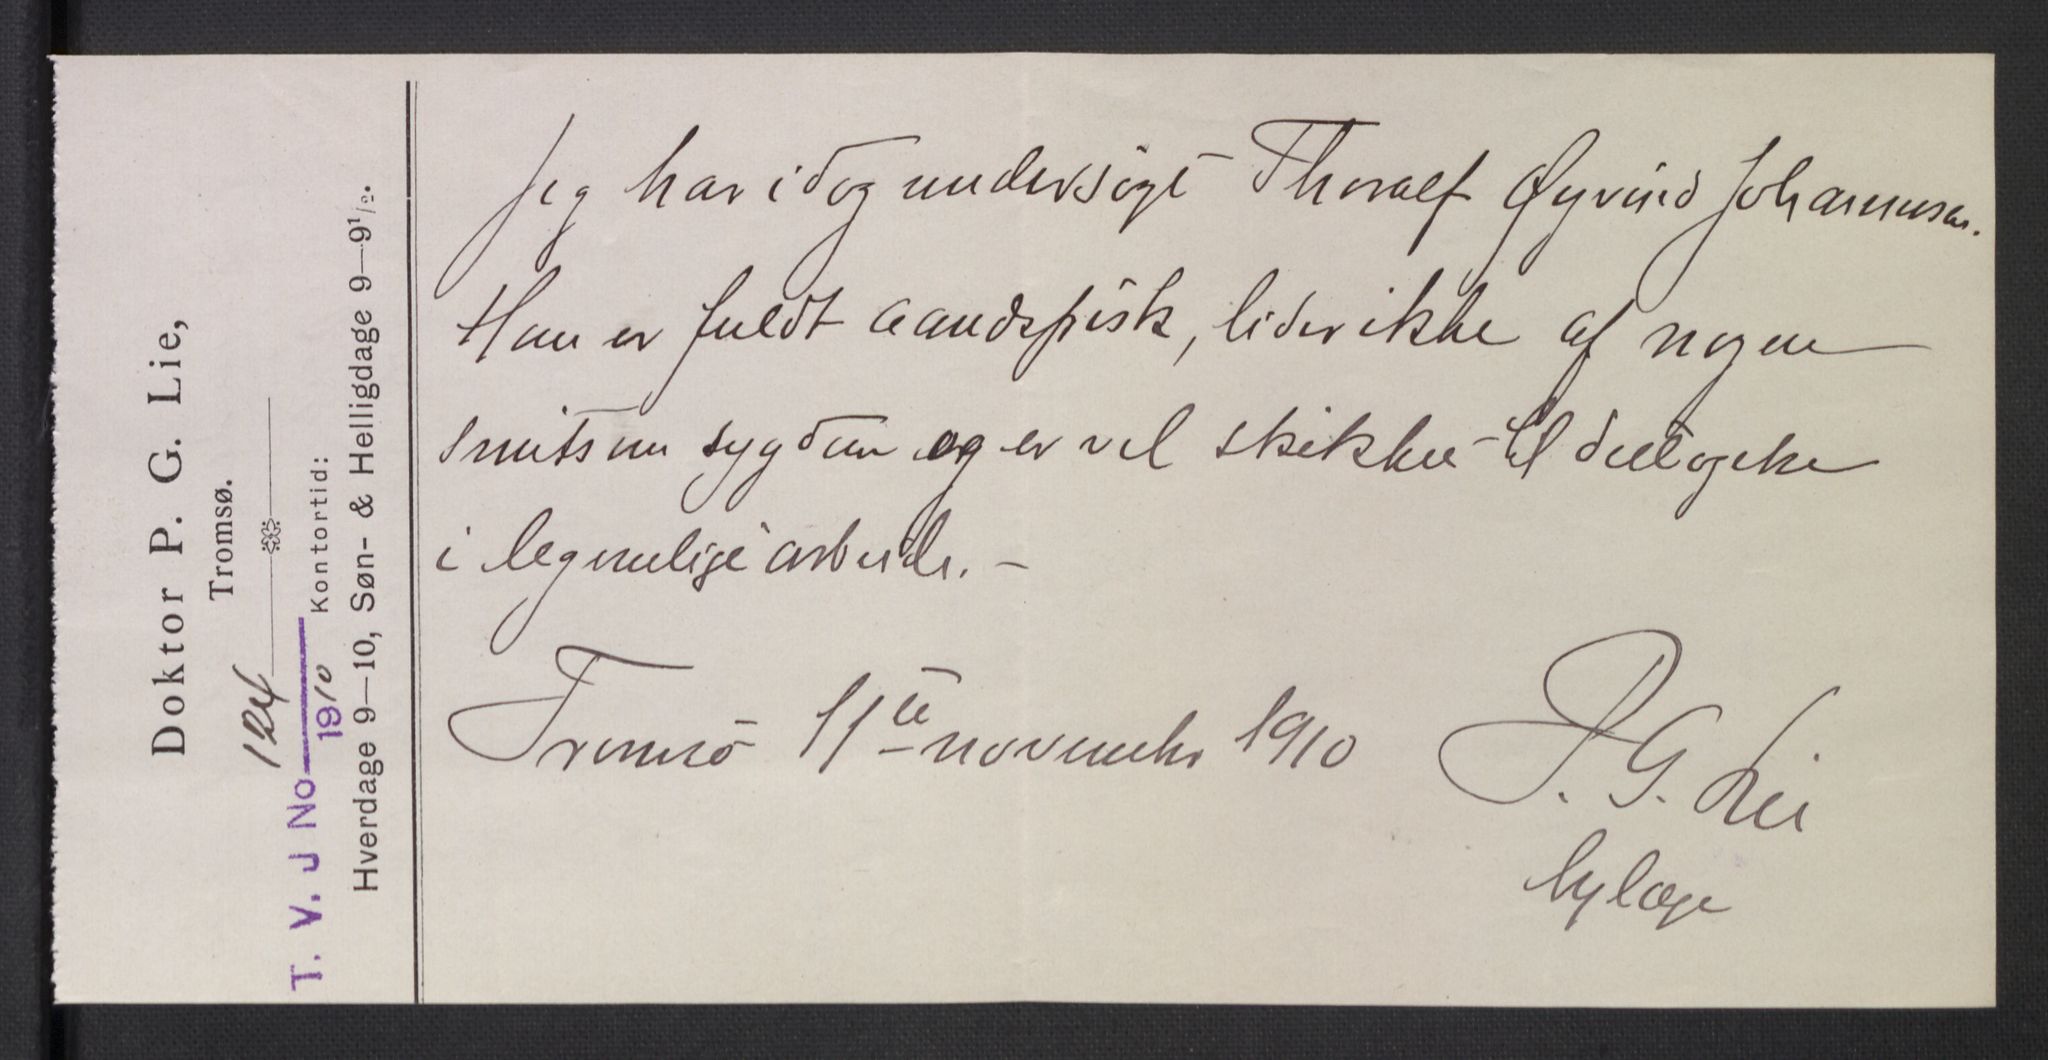 Doktor P. G. Lie,
Tromsø.
124
T. V. J No
1910
Kontortid:
Hverdage 9—10, Søn- & Helligdage 9—9½.
Jeg har idag undersøgt Thoralf Øyvind Johannesen.
Han er fuldt aandsfrisk, lider ikke af nogen
smitsom sygdom og er vel skikket til deeltagelse
i legemlige arbeide. –
Tromsø 11te november 1910
P. G. Lie
bylæge